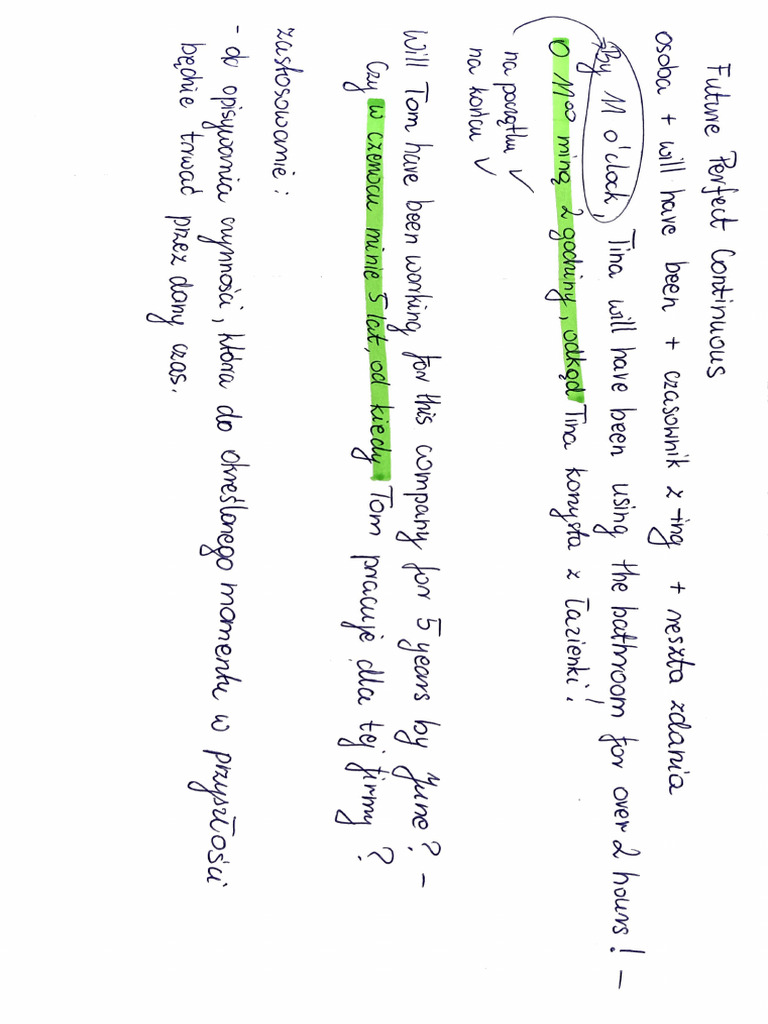 Future Perfect Continuous
osoba + will have been + czasownik z -ing + reszta zdania
By 11 o'clock, Tina will have been using the bathroom for over 2 hours! -
O 11⁰⁰ miną 2 godziny, odkąd Tina korzysta z łazienki!
na początku ✓
na końcu ✓
Will Tom have been working for this company for 5 years by June? -
Czy w czerwcu minie 5 lat, od kiedy Tom pracuje dla tej firmy?
zastosowanie:
- do opisywania czynności, która do określonego momentu w przyszłości
będzie trwać przez dany czas.